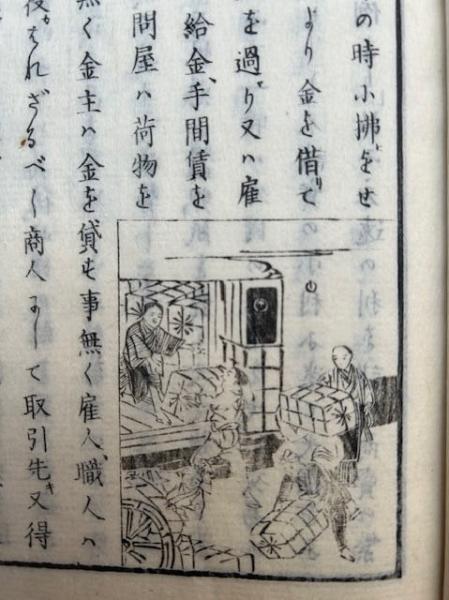 の時小拂をせ
より金を借りて
を過り又ハ雇
給金、手間賃を
問屋ハ荷物を
無く金主ハ金を貸す事無く雇人、職人ハ
はれざるべし商人にして取引先又得